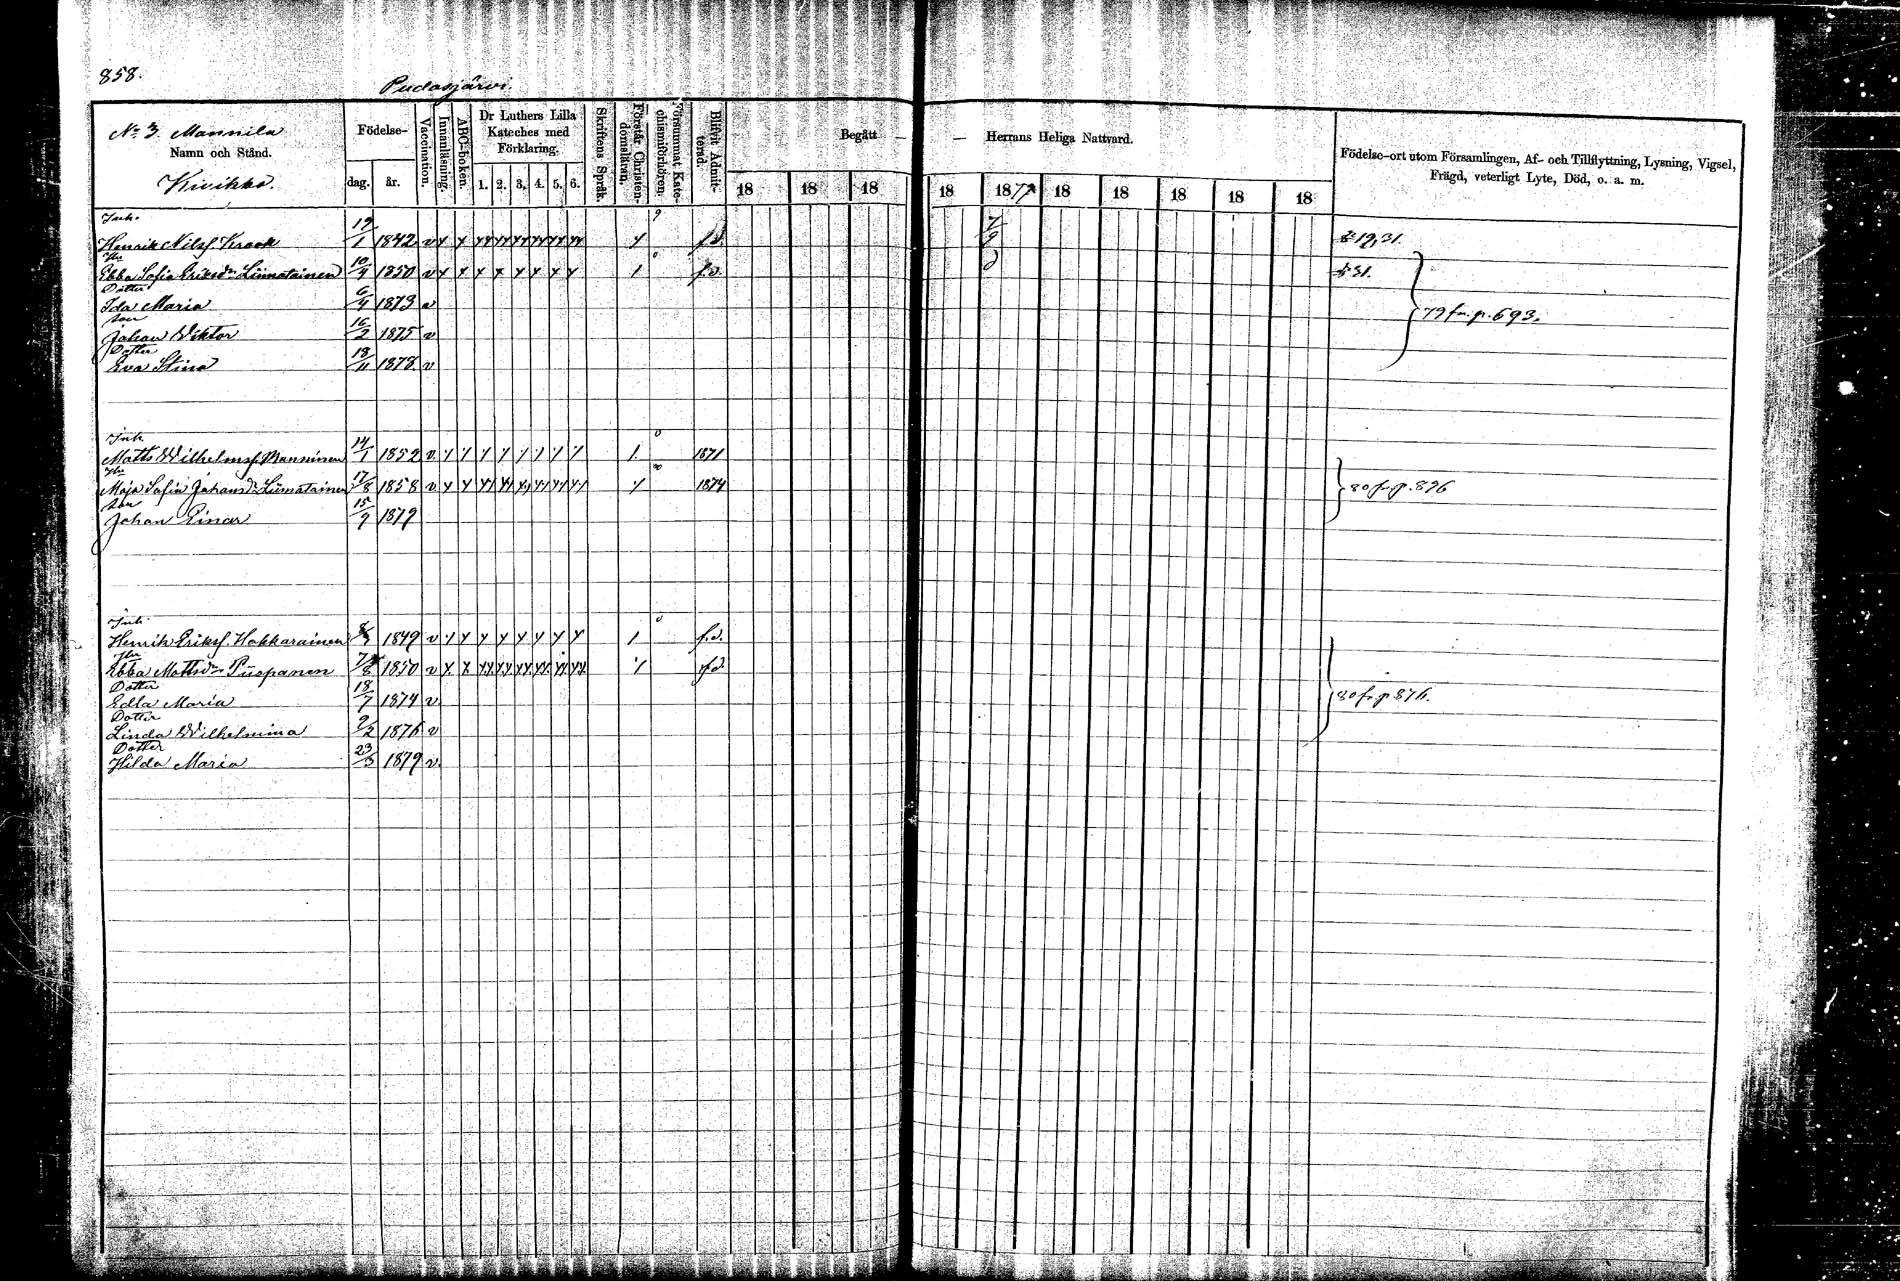 858.
Pudasjärvi.
No 3. Mannila
Namn och Stånd.
Kivikko.
Födelse-
dag. år.
Vaccination.
Innanläsning.
ABC-boken.
Dr Luthers Lilla
Kateches med
Förklaring.
1. 2. 3. 4. 5. 6.
Skriftens Språk.
Förstår Christen-
domsläran.
Försummat Kate-
chismiförhören.
Blifvit Admit-
terad.
Begått — — Herrans Heliga Nattvard.
18 18 18 18 1877 18 18 18 18 18
Födelse-ort utom Församlingen, Af- och Tillflyttning, Lysning, Vigsel,
Frägd, veterligt Lyte, Död, o. a. m.
Inh.
Henrik Nilsf. Krook 19/1 1842 v f.d. 7/9 19, 31.
Hu
Ebba Sofia Eriksdr Liimatainen 10/4 1850 v f.d. 31.
Dotter
Ida Maria 6/4 1873 v
79 fr. p. 693.
Son
Johan Wiktor 16/2 1875 v
Dotter
Eva Stina 18/11 1878 v
Inh.
Matts Wilhelmsf. Manninen 14/1 1852 v. 1871
Hu
Maja Sofia Johansdr Liimatainen 17/8 1858 v. 1874
80 fr. p. 896
Son
Johan Einar 15/9 1879
Inh.
Henrik Eriksf. Hakkarainen 1849 v f.d.
Hu
Ebba Mattsdr Piispanen 7/8 1850 v f.d.
Dotter
Edla Maria 18/7 1874 v
80 fr. p 876.
Dotter
Linda Wilhelmina 9/2 1876 v
Dotter
Hilda Maria 23/3 1879 v.